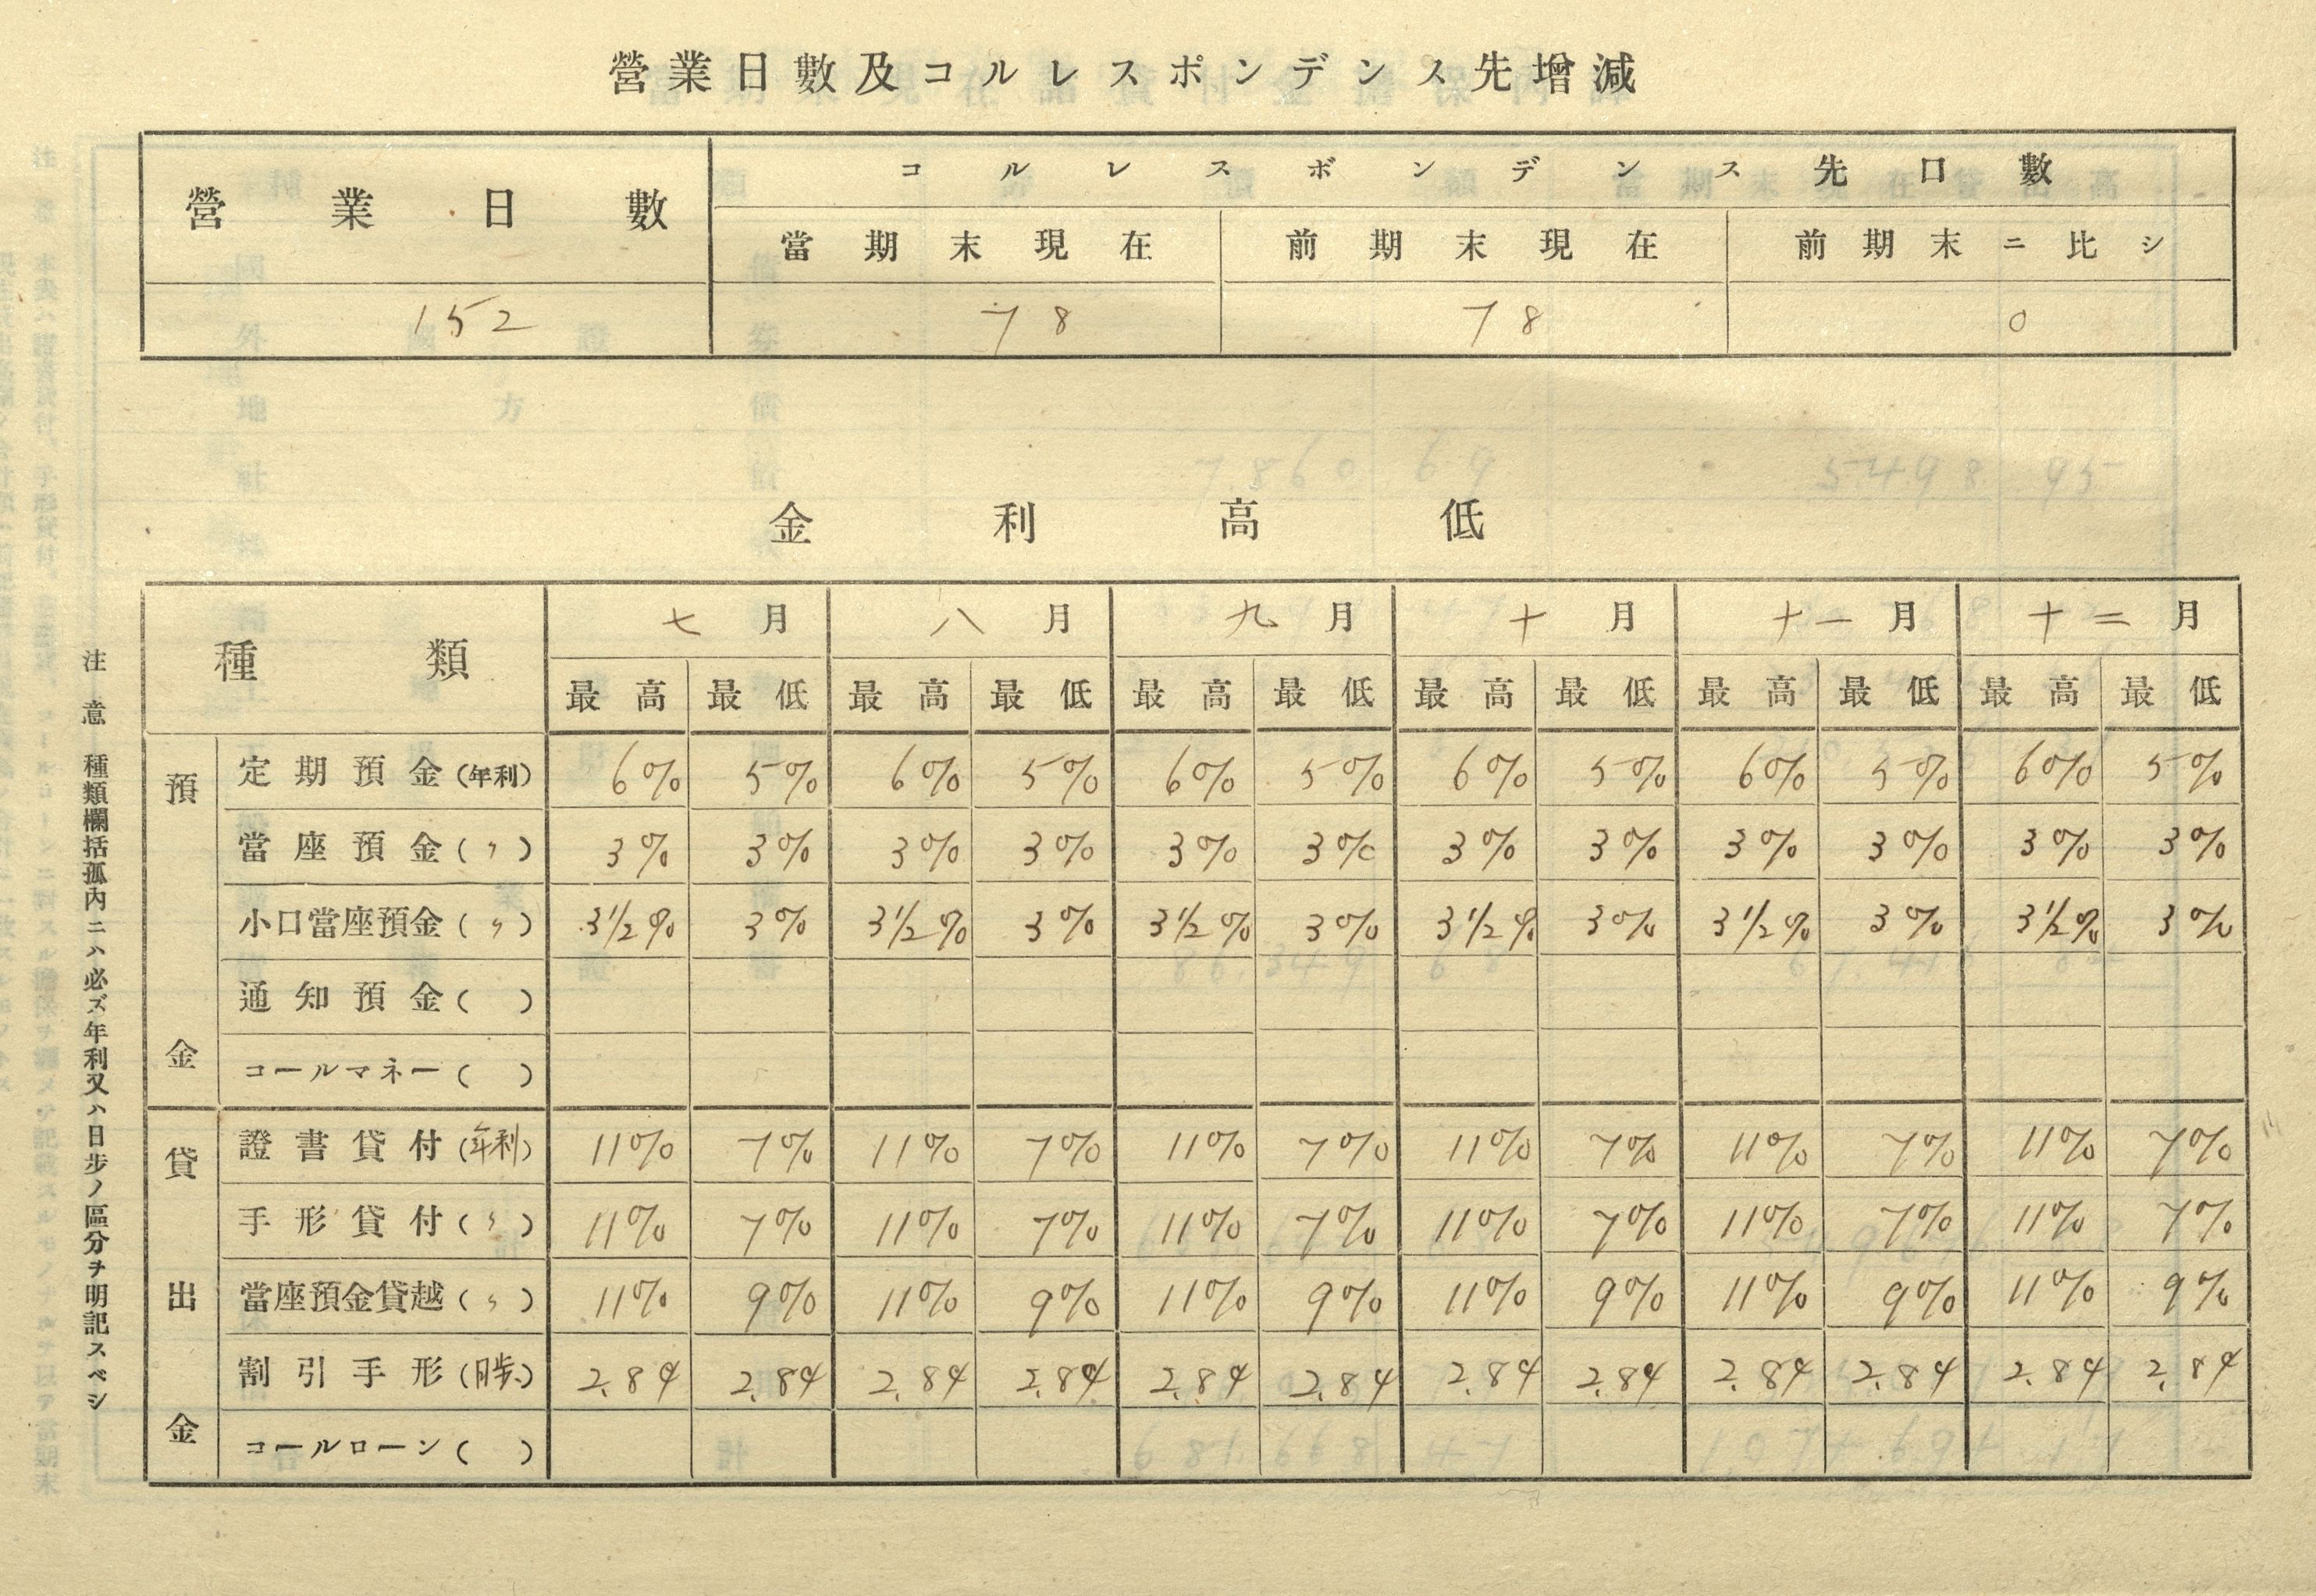 營業日數及コルレスポンデンス先增減
營業日數 コルレスポンデンス先口數
當期末現在 前期末現在 前期末ニ比シ
152 78 78 0
金利高低
種類 七月 八月 九月 十月 十一月 十二月
最高 最低 最高 最低 最高 最低 最高 最低 最高 最低 最高 最低
預金
定期預金(年利) 6% 5% 6% 5% 6% 5% 6% 5% 6% 5% 6% 5%
當座預金(〃) 3% 3% 3% 3% 3% 3% 3% 3% 3% 3% 3% 3%
小口當座預金(〃) 3½% 3% 3½% 3% 3½% 3% 3½% 3% 3½% 3% 3½% 3%
通知預金( )
コールマネー( )
貸出金
證書貸付(年利) 11% 7% 11% 7% 11% 7% 11% 7% 11% 7% 11% 7%
手形貸付(〃) 11% 7% 11% 7% 11% 7% 11% 7% 11% 7% 11% 7%
當座預金貸越(〃) 11% 9% 11% 9% 11% 9% 11% 9% 11% 9% 11% 9%
割引手形(日歩) 2.84 2.84 2.84 2.84 2.84 2.84 2.84 2.84 2.84 2.84 2.84 2.84
コールローン( )
注意 種類欄括孤內ニハ必ズ年利又ハ日步ノ區分ヲ明記スベシ